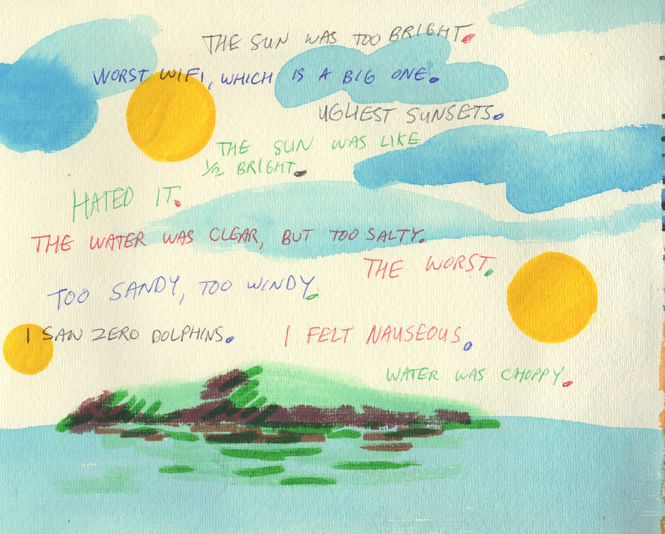 THE SUN WAS TOO BRIGHT.
WORST WIFI, WHICH IS A BIG ONE.
UGLIEST SUNSETS.
THE SUN WAS LIKE
1/2 BRIGHT.
HATED IT.
THE WATER WAS CLEAR, BUT TOO SALTY.
THE WORST.
TOO SANDY, TOO WINDY.
I SAW ZERO DOLPHINS.
I FELT NAUSEOUS.
WATER WAS CHOPPY.